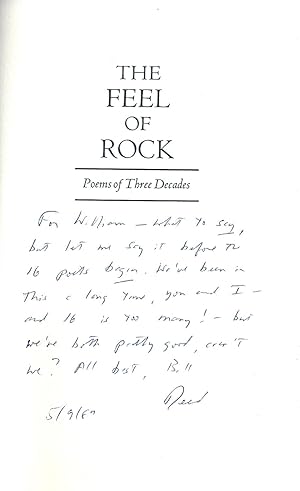 THE
FEEL
OF
ROCK
Poems of Three Decades
For William – what to say,
but let me say it before the
16 poets begin. We've been in
this a long time, you and I –
and 16 is too many! – but
we're both pretty good, aren't
we? All best, Bill
Reed